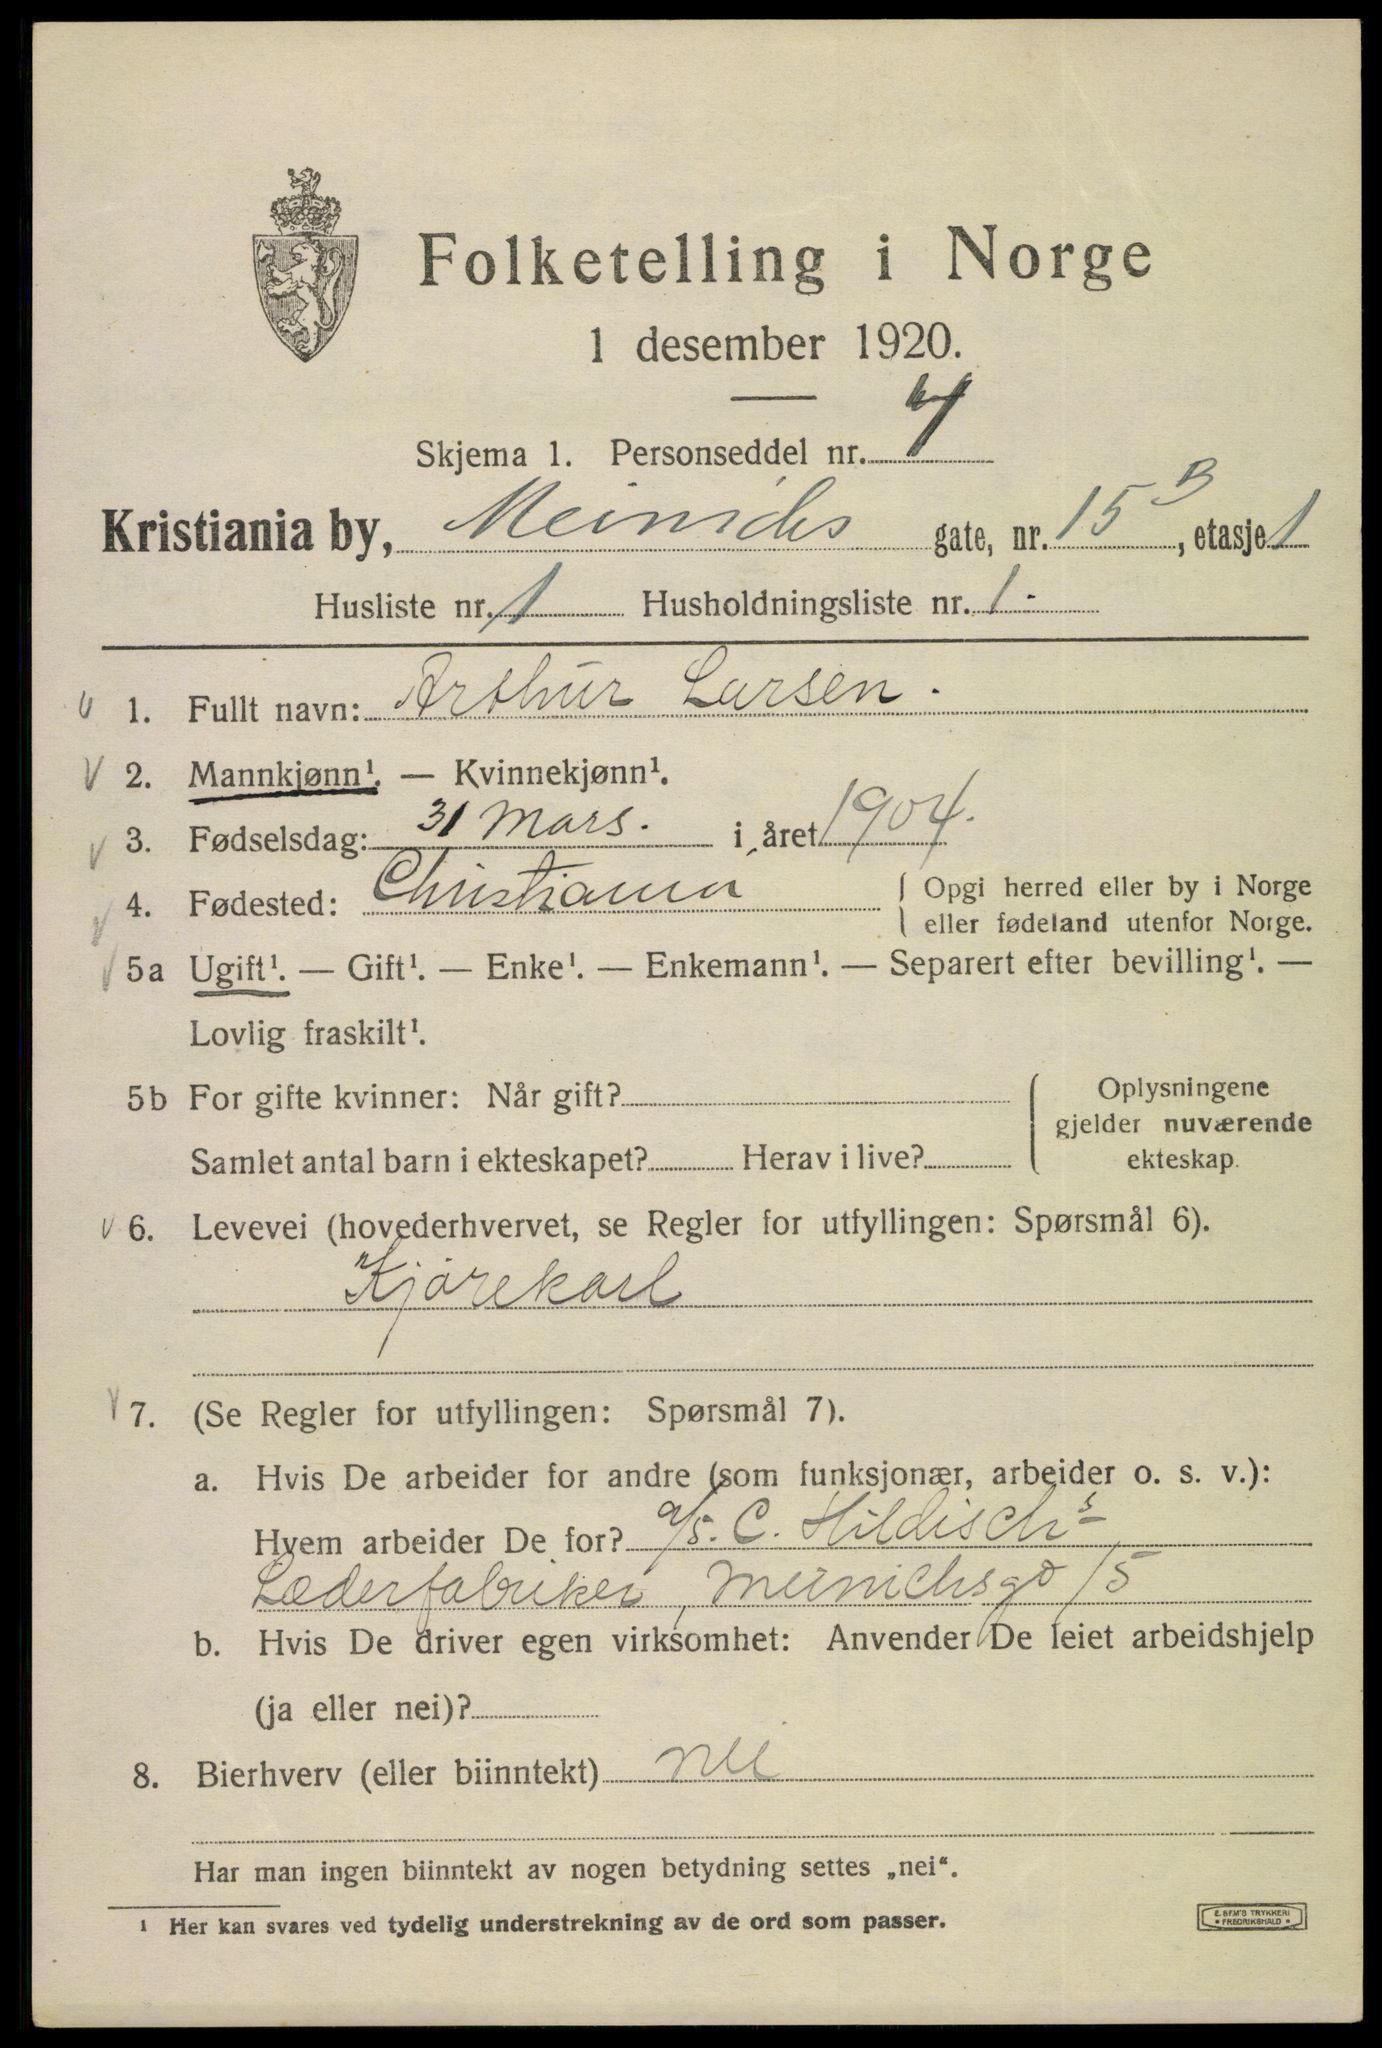 Folketelling i Norge
1 desember 1920.
Skjema 1. Personseddel nr. 4
Kristiania by, Meinichs gate, nr. 15 B, etasje 1
Husliste nr. 1 Husholdningsliste nr. 1.
1. Fullt navn: Arthur Larsen.
2. Mannkjønn¹. — Kvinnekjønn¹.
3. Fødselsdag: 31 Mars. i året 1904.
4. Fødested: Christiania { Opgi herred eller by i Norge
eller fødeland utenfor Norge.
5a Ugift¹. — Gift¹. — Enke¹. — Enkemann¹. — Separert efter bevilling¹. —
Lovlig fraskilt¹.
5b For gifte kvinner: Når gift? { Oplysningene
gjelder nuværende
Samlet antal barn i ekteskapet? Herav i live? ekteskap.
6. Levevei (hovederhvervet, se Regler for utfyllingen: Spørsmål 6).
Kjørekarl
7. (Se Regler for utfyllingen: Spørsmål 7).
a. Hvis De arbeider for andre (som funksjonær, arbeider o. s. v.):
Hvem arbeider De for? a/s. C. Hildisch's
Læderfabriker, Meinichsgd 15
b. Hvis De driver egen virksomhet: Anvender De leiet arbeidshjelp
(ja eller nei)?
8. Bierhverv (eller biinntekt) nei
Har man ingen biinntekt av nogen betydning settes „nei“.
¹ Her kan svares ved tydelig understrekning av de ord som passer.
E. SEM'S TRYKKERI
• FREDRIKSHALD •